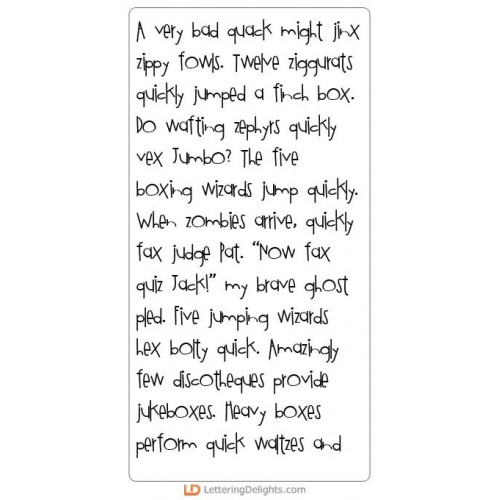 A very bad quack might jinx
zippy fowls. Twelve ziggurats
quickly jumped a finch box.
Do wafting zephyrs quickly
vex Jumbo? The five
boxing wizards jump quickly.
When zombies arrive, quickly
fax judge Pat. “Now fax
quiz Jack!” my brave ghost
pled. Five jumping wizards
hex bolty quick. Amazingly
few discotheques provide
jukeboxes. Heavy boxes
perform quick waltzes and
LD LetteringDelights.com